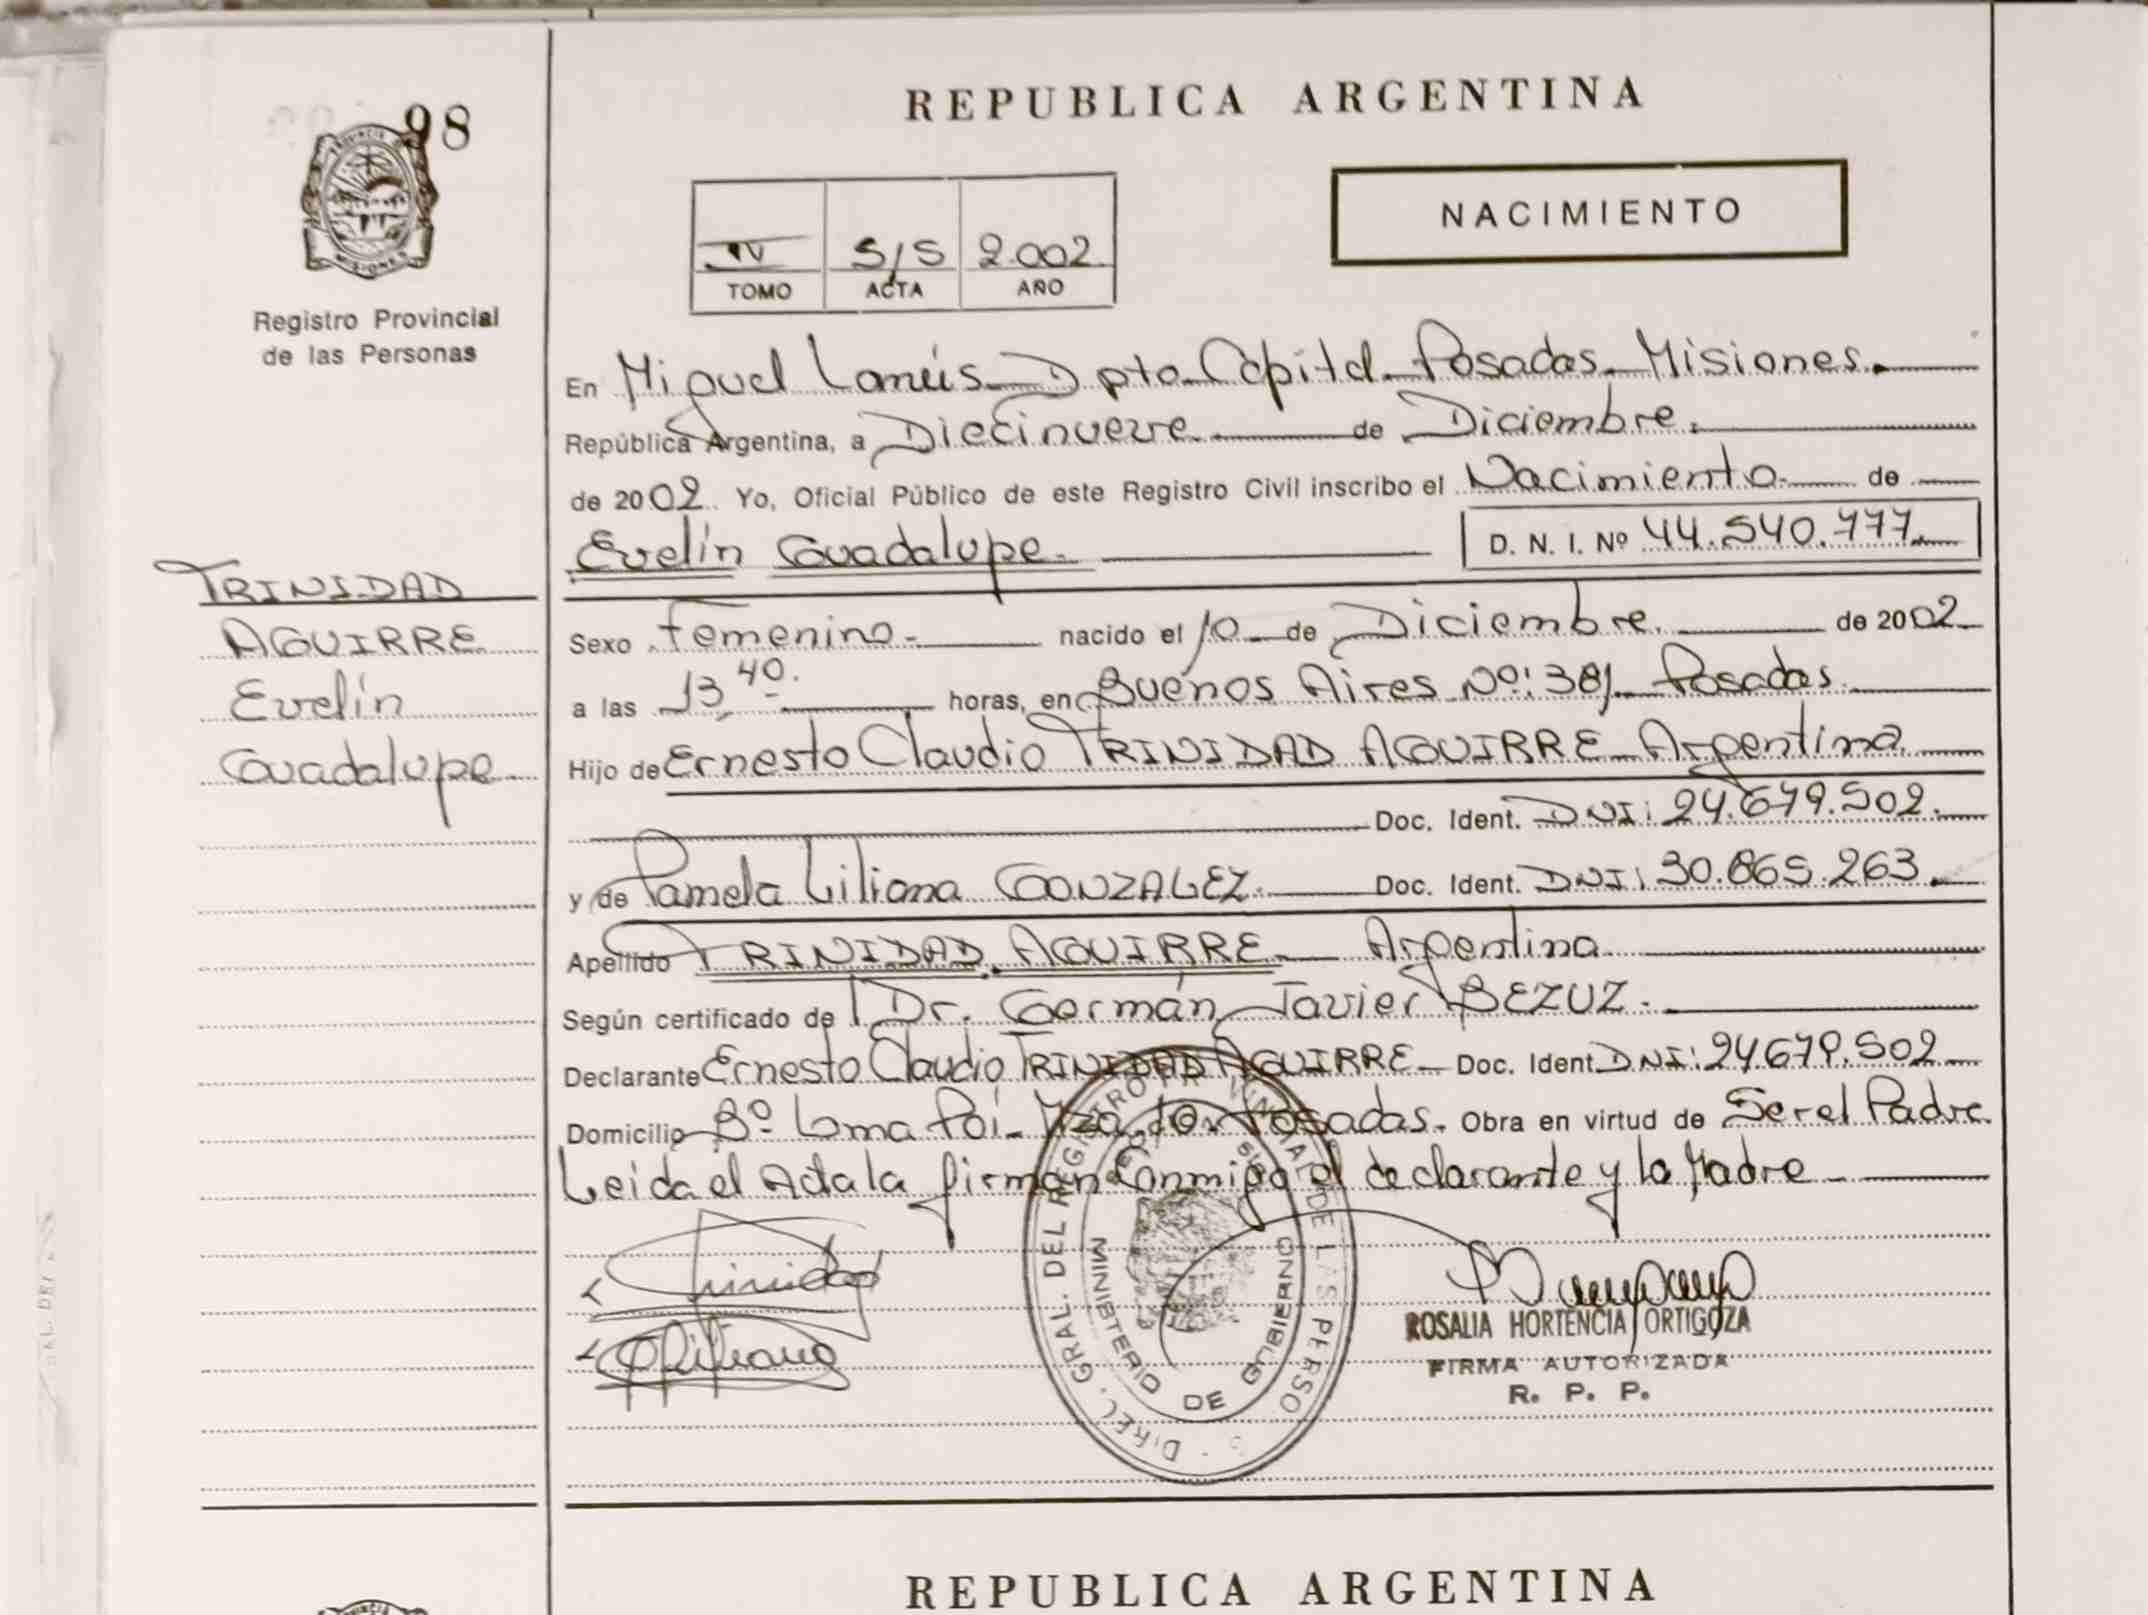 98
PROVINCIA
MISIONES
Registro Provincial
de las Personas
TRINIDAD
AGUIRRE
Evelín
Guadalupe
REPUBLICA ARGENTINA
NACIMIENTO
IV S/S 2.002
TOMO ACTA AÑO
En Miguel Lanús Dpto Capital Posadas Misiones.
República Argentina, a Diecinueve de Diciembre.
de 2002. Yo, Oficial Público de este Registro Civil inscribo el Nacimiento de
Evelín Guadalupe. D. N. I. Nº 44.540.777
Sexo Femenino nacido el 10 de Diciembre. de 2002
a las 13 40. horas, en Buenos Aires Nº: 381 Posadas
Hijo de Ernesto Claudio TRINIDAD AGUIRRE Argentina
Doc. Ident. DNI: 24.679.502.
y de Pamela Liliana GONZALEZ. Doc. Ident. DNI: 30.865.263.
Apellido TRINIDAD AGUIRRE Argentina
Según certificado de Dr. Germán Javier BEZUZ.
Declarante Ernesto Claudio TRINIDAD AGUIRRE Doc. Ident. DNI: 24.679.502
Domicilio Bº Loma Poí Mza Posadas. Obra en virtud de Ser el Padre
Leida el Acta la firman Conmigo el declarante y la Madre
Trinidad
Liliana
DIREC. GRAL. DEL REGISTRO PROVINCIAL DE LAS PERSONAS
MINISTERIO DE GOBIERNO
ROSALIA HORTENCIA ORTIGOZA
FIRMA AUTORIZADA
R. P. P.
REPUBLICA ARGENTINA